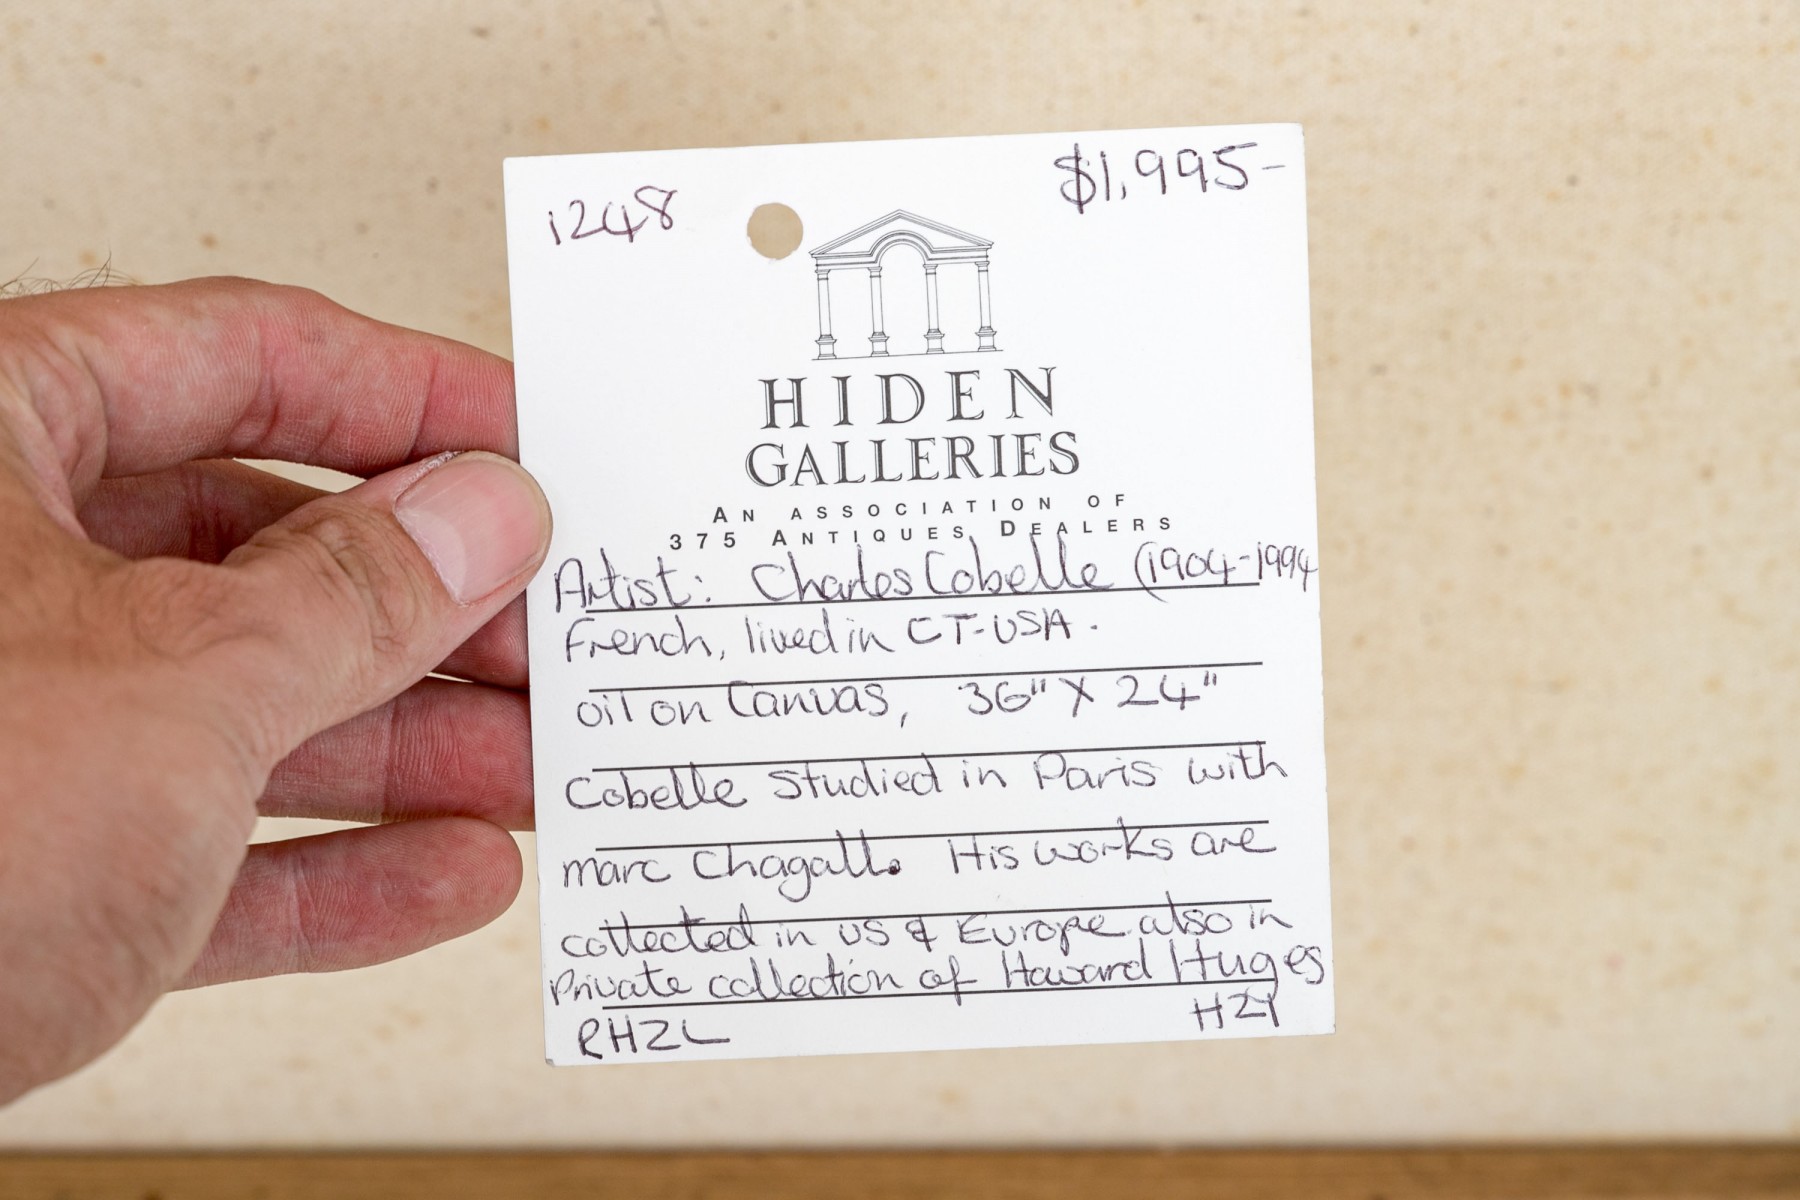 1248
$1,995-
HIDEN
GALLERIES
AN ASSOCIATION OF
375 ANTIQUES DEALERS
Artist: Charles Cobelle (1904-1994
French, lived in CT-USA.
oil on Canvas, 36" X 24"
Cobelle studied in Paris with
marc Chagall. His works are
collected in US & Europe also in
Private collection of Howard Huges
RHZL
HZY